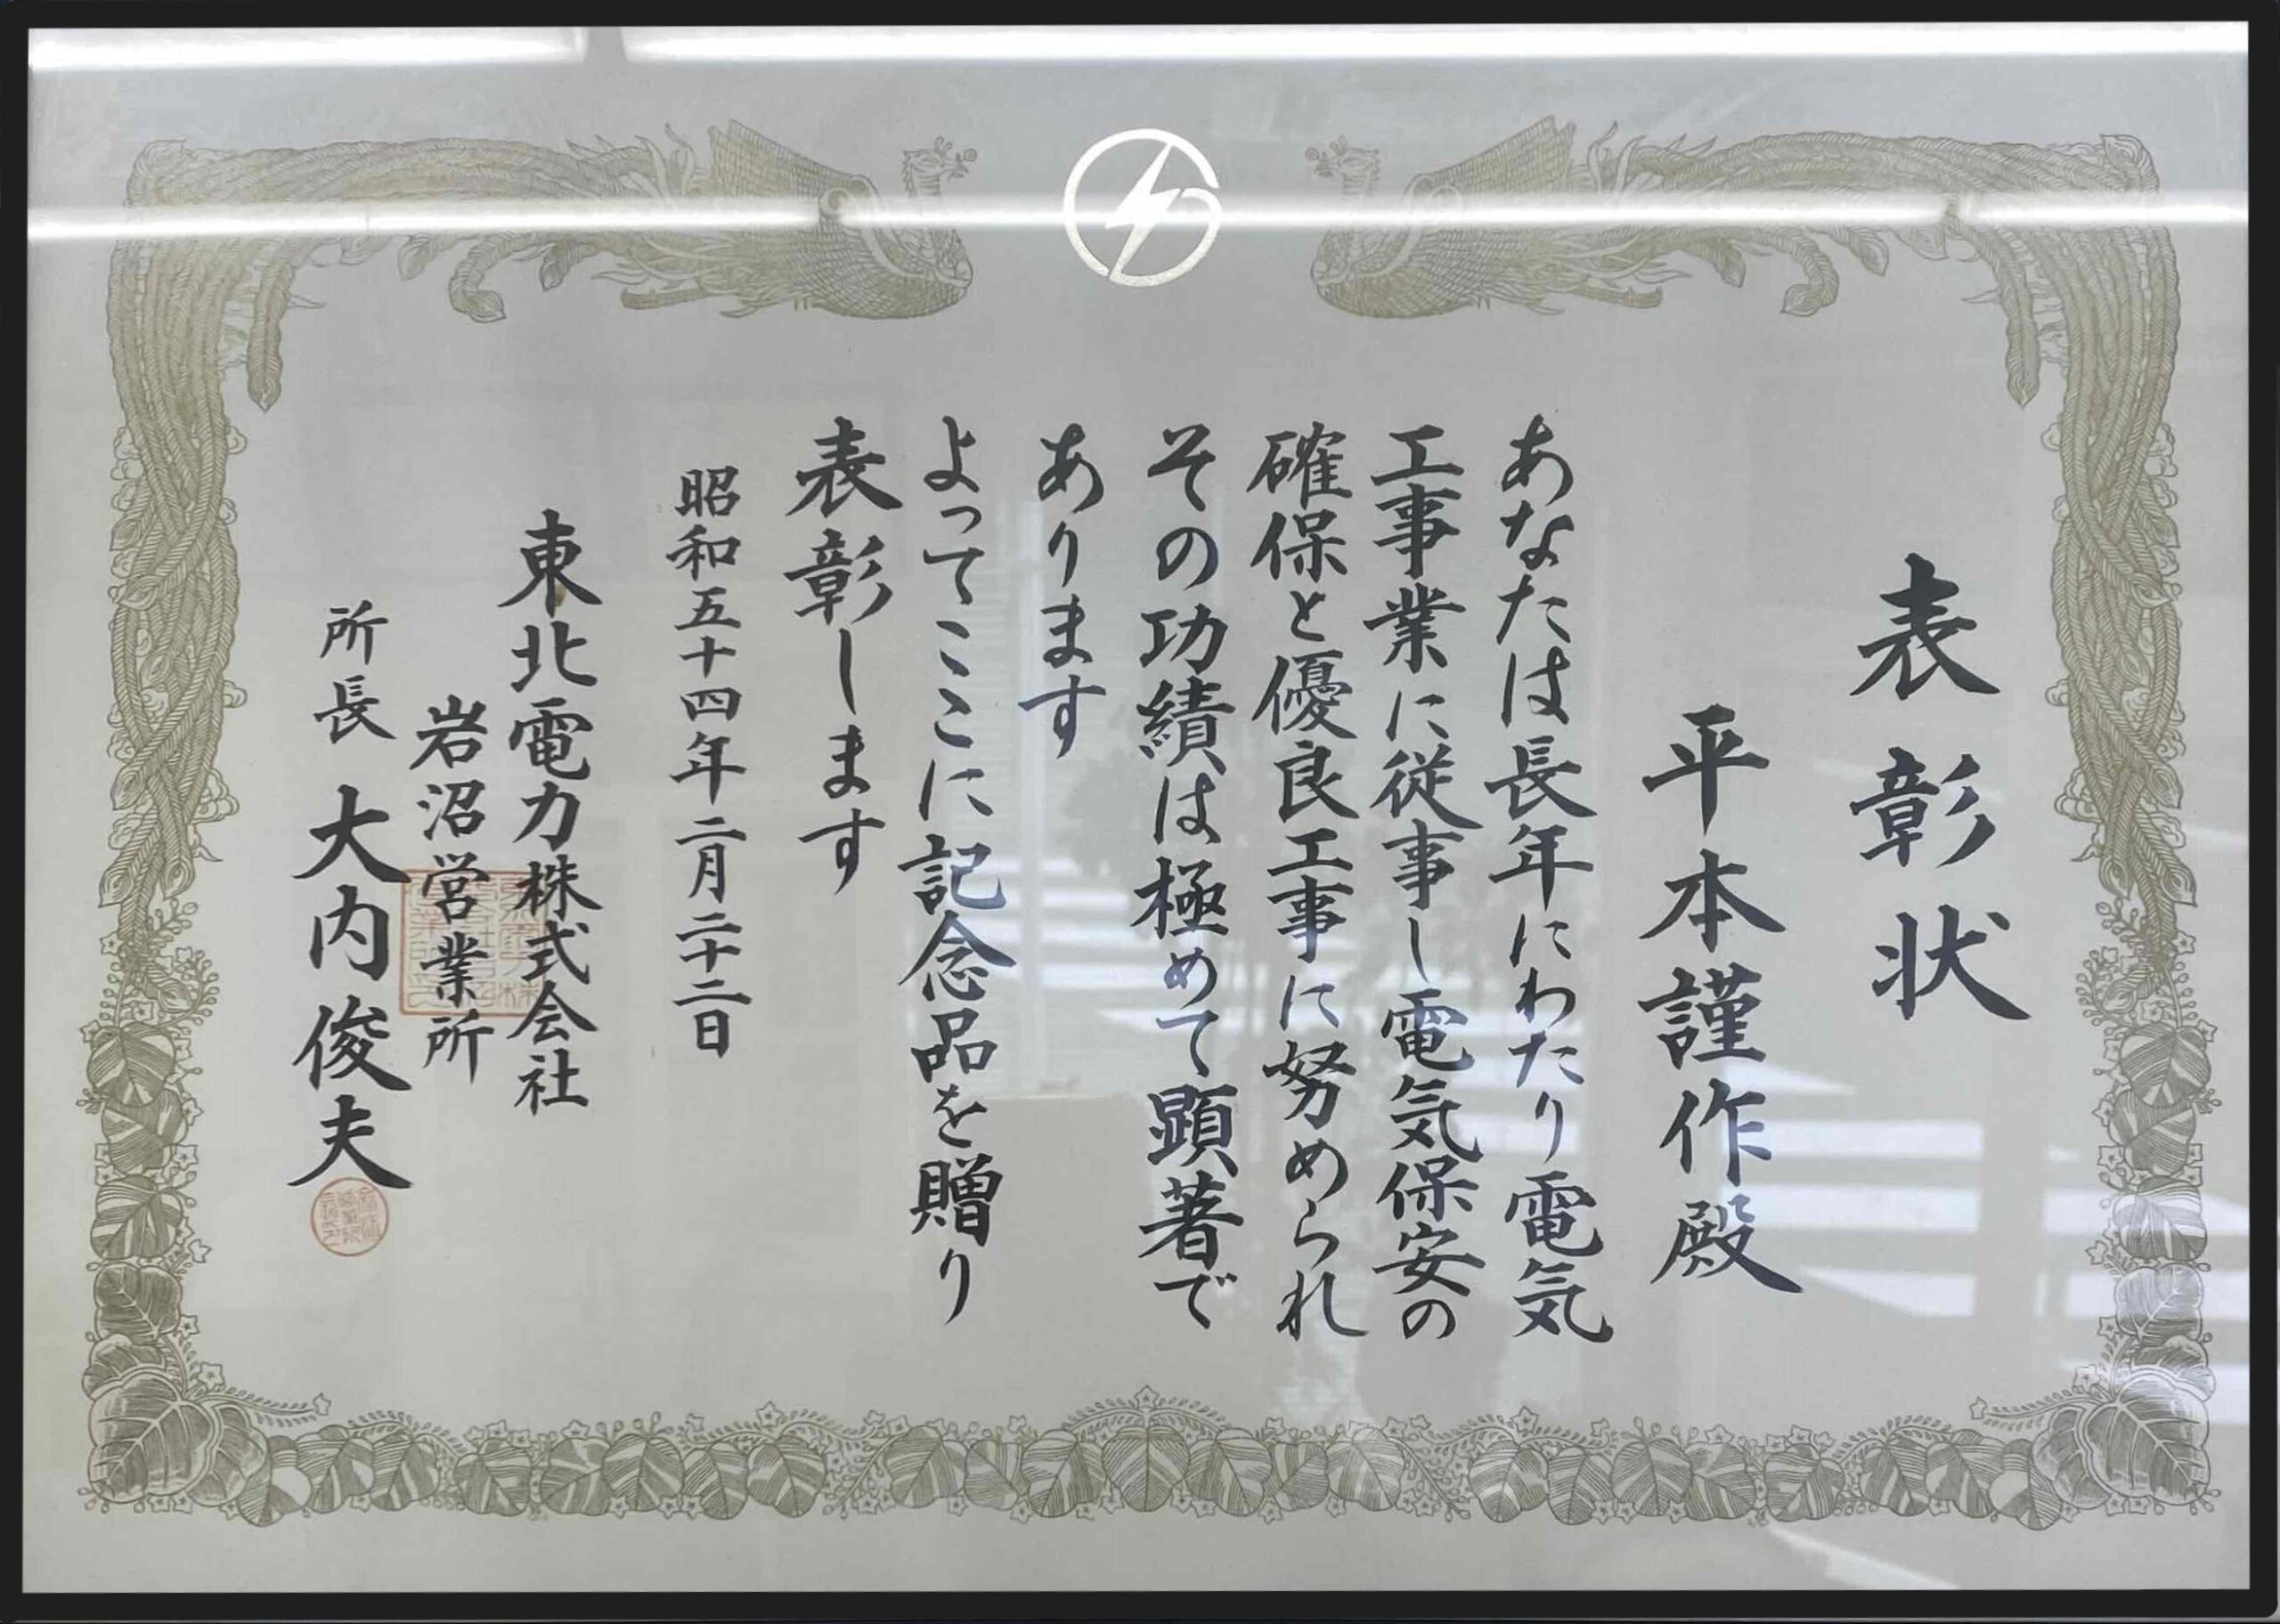 表彰状
平本謹作殿
あなたは長年にわたり電気
工事業に従事し電気保安の
確保と優良工事に努められ
その功績は極めて顕著で
あります
よってここに記念品を贈り
表彰します
昭和五十四年二月二十二日
東北電力株式会社
岩沼営業所
所長 大内俊夫